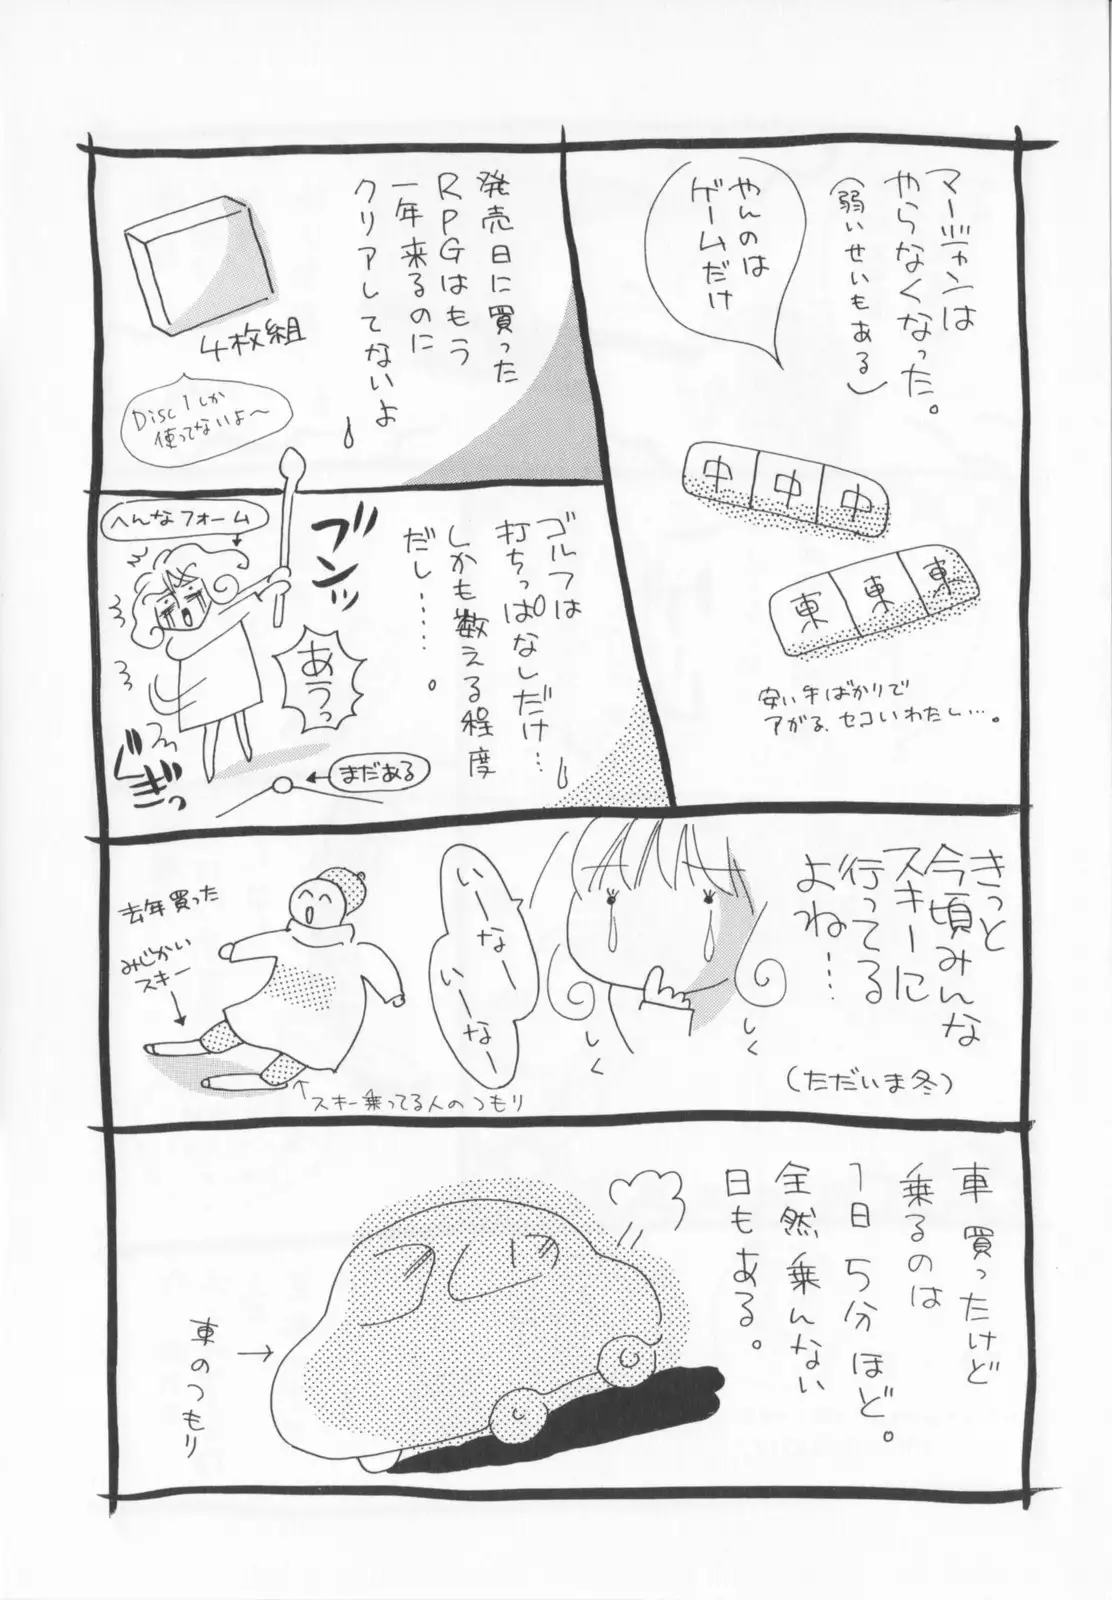 マージャンは
やらなくなった。
（弱いせいもある）
やんのは
ゲームだけ
中中中
東東東
安い手ばかりで
アがる、セコいわたし…。
発売日に買った
RPGはもう
一年来るのに
クリアしてないよ
4枚組
Disc 1しか
使ってないよ〜
ゴルフは
打ちっぱなしだけ…
しかも数える程度
だし……。
へんなフォーム
ブンッ
あうっ
ぐぎっ
まだある
きっと
今頃みんな
スキーに
行ってる
よね…
（ただいま冬）
いーなー
いーなー
しく
しく
去年買った
みじかい
スキー
スキー乗ってる人のつもり
車買ったけど
乗るのは
1日5分ほど。
全然乗んない
日もある。
車のつもり